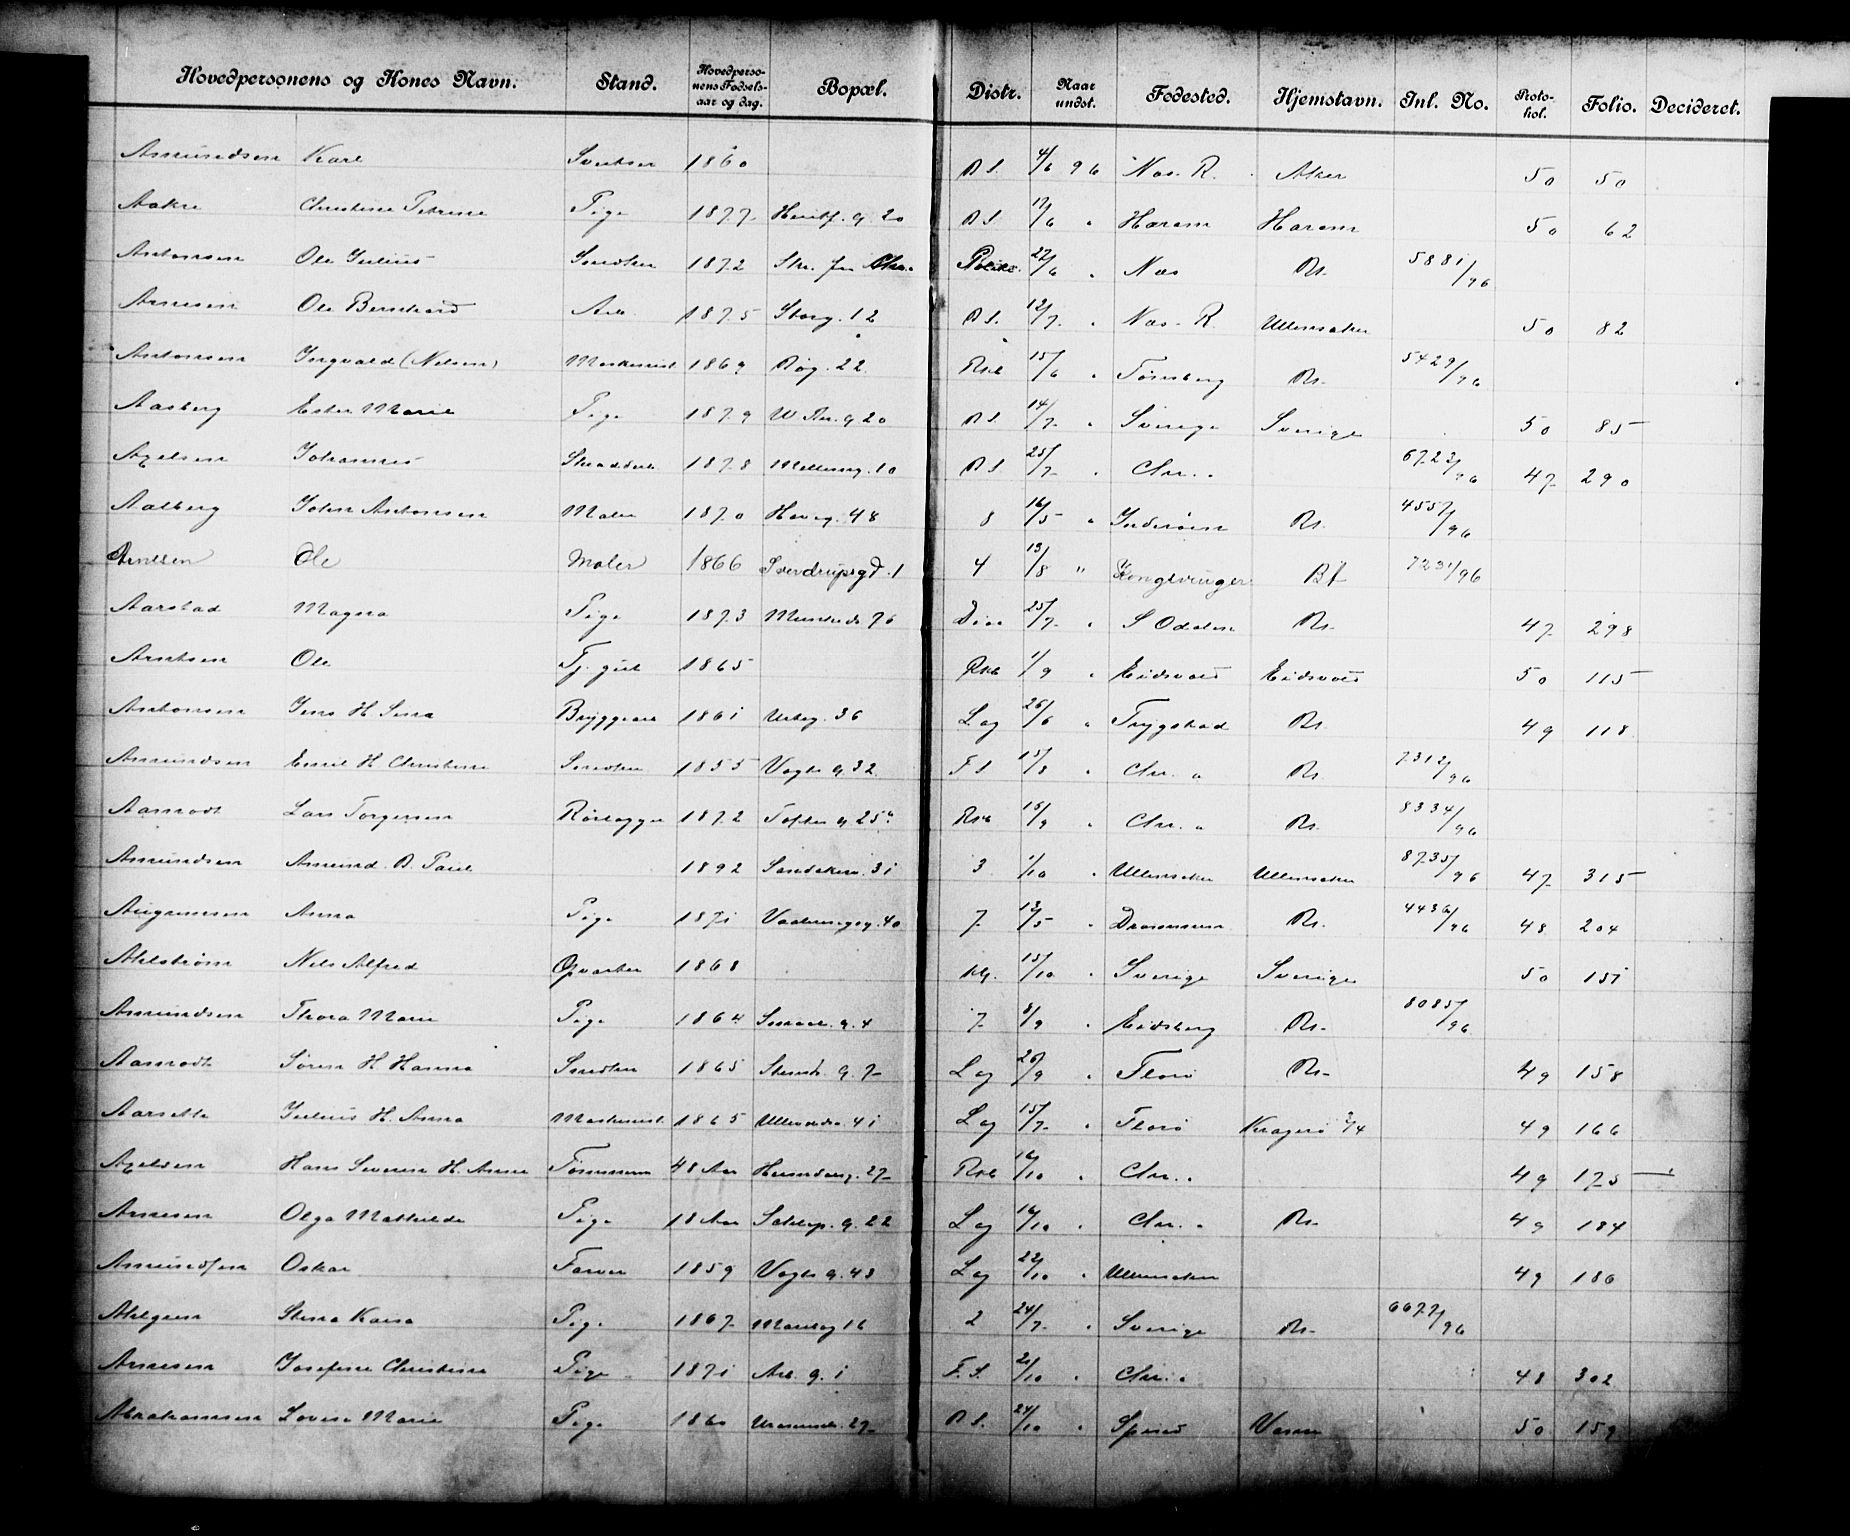 Hovedpersonens og Kones Navn. Stand. Hovedperso- nens Fødsels- aar og dag. Bopæl. Distr. Naar undst. Fødested. Hjemstavn. Inl. No. Proto- kol. Folio. Decideret.
Amundsen Karl 1860 D S. 4/6 96 Næs R. Aker 50 50
Aakre Christine Petrine Pige 1877 g. 20 D S. 17/6 " Harem Harem 50 62
Antonsen Ole Julius Snedker 1872 22/6 " Næs Do. 5881/96
Arnesen Ole Bernhard Arb. 1875 Storg. 12 D S. 12/7 " Næs R. Ullensaker 50 82
Antonsen Ingvald (Nilsen) Maskinist 1869 Røg. 22 15/6 " Tønsberg Do. 5429/96
Aasberg Ester Marie Pige 1879 g 20 D S. 14/7 " Sverige Sverige 50 85
Axelsen Johannes 1878 Mellemg. 10 D S 25/7 " Chr. " 6723/96 47 290
Aalberg John Antonsen Maler 1870 Haveg. 48 8 16/5 " Inderøen Do. 4557/96
Arntsen Ole Maler 1866 Sverdrupsgd. 1 4 13/8 " Kongsvinger 7231/96
Aarstad Magna Pige 1873 76 25/7 " S Odalen Do. 47 298
Arntsen Ole Tj. gut 1865 1/9 " Eidsvold Eidsvold 50 115
Antonsen Jens H Lina Bryggearb 1861 Urteg. 36 Lag 26/6 " Trygstad Do. 49 118
Amundsen Emil H Christine Snedker 1855 Vogts g. 32 F S 15/8 " Chr. " Do. 7312/96
Aamodt Lars Torgersen Rørlægger 1872 Toftes g 25 15/9 " Chr. " Do. 8334/96
Amundsen Amund B. Paul 1892 Sandakerv. 31 3 1/10 " Ullensaker Ullensaker 8735/96 47 315
Augunsen Anna Pige 1871 Vaalerengg. 40 7 12/5 " Drammen Do. 4436/96 48 204
Ahlstrøm Nils Alfred Opvarter 1868 15/10 " Sverige Sverige 50 151
Amundsen Thora Marie Pige 1864 g. 4 7 8/9 " Eidsberg Do. 8085/96
Aamodt Søren H Hanna Snedker 1865 Steenst. g. 7 Lag 26/9 " Florø Do. 49 158
Aarseth Julius H. Anna Maskinist 1865 Ullevoldsv. 41 Lag 15/7 " Florø Kragerø 49 166
Axelsen Hans Severin H. Anna Tømmerm 48 Aar 27 16/10 " Chr. " 49 175
Arnesen Olga Mathilde Pige 18 Aar Schlep. g. 22 Lag 16/10 " Chr. " Do. 49 184
Amundsen Oskar Farver 1859 Vogts g. 43 Lag 22/10 " Ullensaker 49 186
Ahlgren Stina Kaisa Pige 1867 16 2 24/7 " Sverige Do. 6677/96
Arnesen Josefine Christine Pige 1871 Arb. g. 1 F. S. 2/10 " Chr. " 48 302
Abrahamsen Lovise Marie Pige 1860 27 D S. 24/10 " 50 159